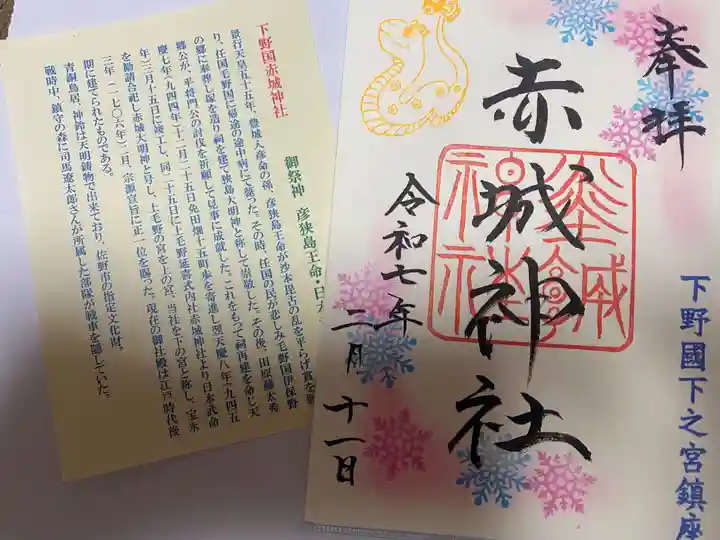 下野国赤城神社
御祭神 彦狭島王命・日本
景行天皇五十五年、豊城入彦命の孫、彦狭島王命が沙本毘古の乱を平らげ賞を
り、任国毛野国に帰途の途中病にて薨った。その時、任国の民が悲しみ毛野国伊保野
の郷に奉葬し塚を造り祠を建て狭島大明神と称して崇敬した。その後、田原藤太秀
郷公が、平将門公の討伐を祈願して見事に成就した。これをもって祠再建を命じ天
慶七年(九四四年)十二月二十五日免田畑十五町歩を寄進し翌天慶八年(九四五
年)三月十五日に竣工し、同二十五日に上毛野延喜式内社赤城神社より日本武命
を勧請合祀し赤城大明神と号し、上毛野の宮を上の宮、当社を下の宮と称し、宝永
三年(一七〇六年)二月、宗源宣旨に正一位を賜った。現在の御社殿は江戸時代後
期に建てられたものである。
青銅鳥居、神鈴は天明鋳物で出来ており、佐野市の指定文化財。
戦時中、鎮守の森に司馬遼太郎さんが所属した部隊が戦車を隠していた。
奉拝
赤城神社
令和七年
二月十一日
下野國下之宮鎮座